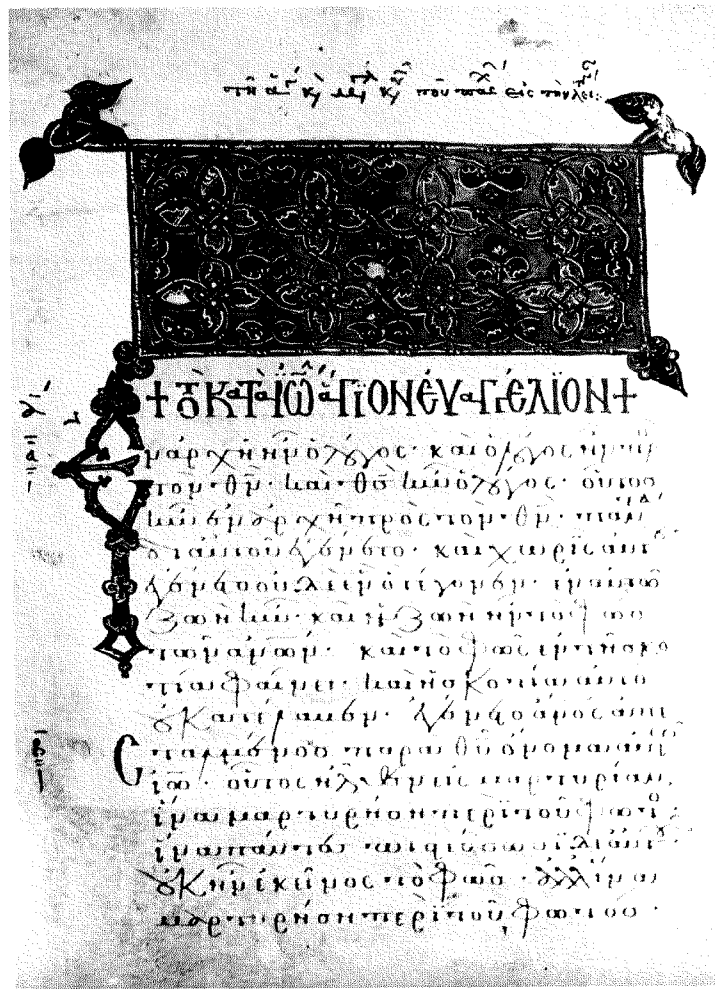 εἰς τὴν λει
+ τὸ κατὰ ἰω ἅγιον ἐυαγγέλιον +
Ἐν ἀρχῆ ἦν ὁ λόγος· καὶ ὁ λόγος ἦν πρ
τὸν θν· καὶ θς ἦν ὁ λόγος· οὗτος
ἦν ἐν ἀρχῆ πρὸς τὸν θν· πάντ
δι αὐτοῦ ἐγένετο· καὶ χωρὶς αὐτ
ἐγένετο οὐδὲ ἓν ὃ γέγονεν· ἐν αὐτῶ
ζωὴ ἦν· καὶ ἡ ζωὴ ἦν τὸ φῶς
τῶν ἀνων· καὶ τὸ φῶς ἐν τῆ σκο
τία φαίνει· καὶ ἡ σκοτία αὐτὸ
οὐ κατέλαβεν· ἐγένετο ἄνος ἀπε
σταλμένος παρὰ θυ ὄνομα
ἰω· οὗτος ἦλθεν εἰς μαρτυρίαν
ἵνα μαρτυρήση περὶ τοῦ φωτο
ἵνα πάντες πιστεύσωσι δι αὐτ
οὐκ ἦν ἐκεῖνος τὸ φῶς· ἀλλ ἵνα
μαρτυρήση περὶ τοῦ φωτός·